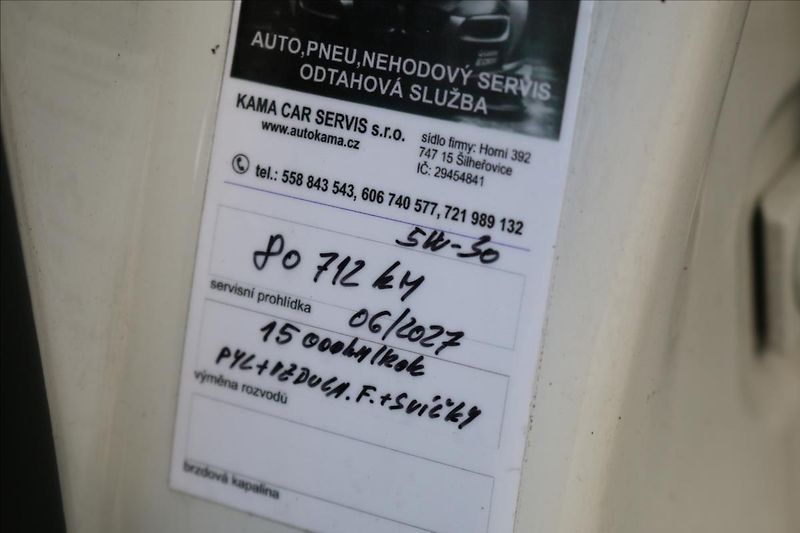 AUTO,PNEU,NEHODOVÝ SERVIS
ODTAHOVÁ SLUŽBA
KAMA CAR SERVIS s.r.o.
www.autokama.cz
sídlo firmy: Horní 392
747 15 Šilheřovice
IČ: 29454841
tel.: 558 843 543, 606 740 577, 721 989 132
5W-30
80 712 km
servisní prohlídka
06/2027
15 000km/rok
PYL+VZDUCH.F.+SVÍČKY
výměna rozvodů
brzdová kapalina